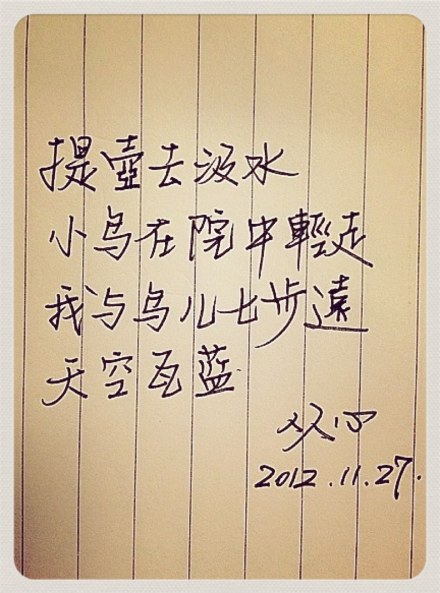 提壺去汲水
小鸟在院中輕走
我与鸟儿七步遠
天空瓦蓝
心
2012.11.27.